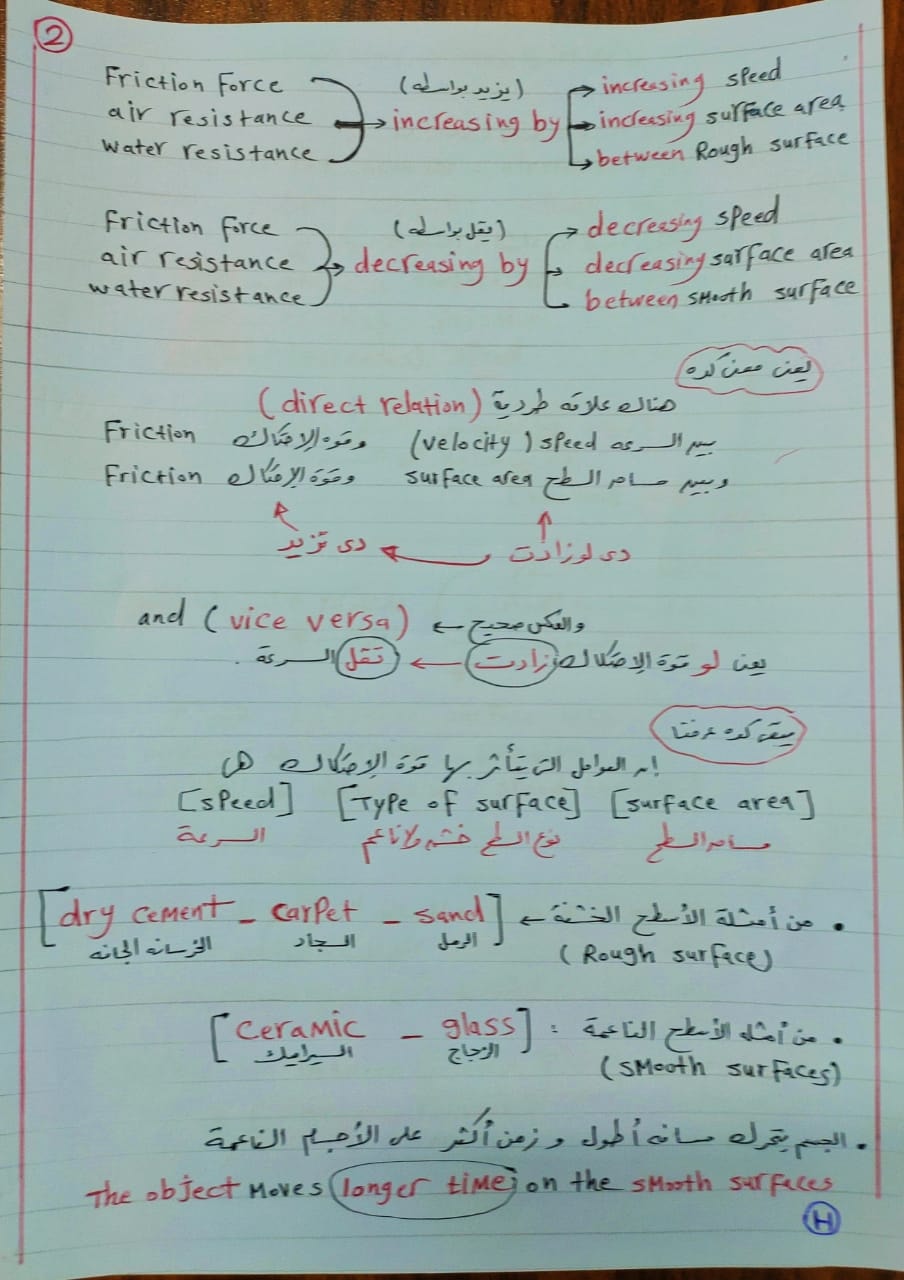 2
Friction Force
air resistance
water resistance
(يزيد بواسطه)
increasing by
increasing speed
increasing surface area
between Rough surface
Friction force
air resistance
water resistance
(يقل بواسطه)
decreasing by
decreasing speed
decreasing sarface area
between smooth surface
يعن معن كده
هناك علاقه طردية (direct relation)
بين السرعه speed (velocity) وقوه الإحتكاك Friction
وبين مساحه السطح surface area وقوة الإحتكاك Friction
دى لو زادت ← دى تزيد
والعكس صحيح ← and (vice versa)
يعن لو قوة الإحتكاك زادت ← تقل السرعة.
يبقى كده عرفنا
إن العوامل التى يتأثر بها قوة الإحتكاك هى
[speed] [Type of surface] [surface area]
السرعة نوع السطح خشن ولا ناعم مساحه السطح
• من أمثلة الأسطح الخشنة ← [dry cement - carpet - sand]
الخرسانه الجافه السجاد الرمل
(Rough surface)
• من أمثله الأسطح الناعمة : [ceramic - glass]
السيراميك الزجاج
(smooth surfaces)
• الجسم يتحرك مسافه أطول و زمن أكثر على الأجسام الناعمة
The object moves (longer time) on the smooth surfaces
H